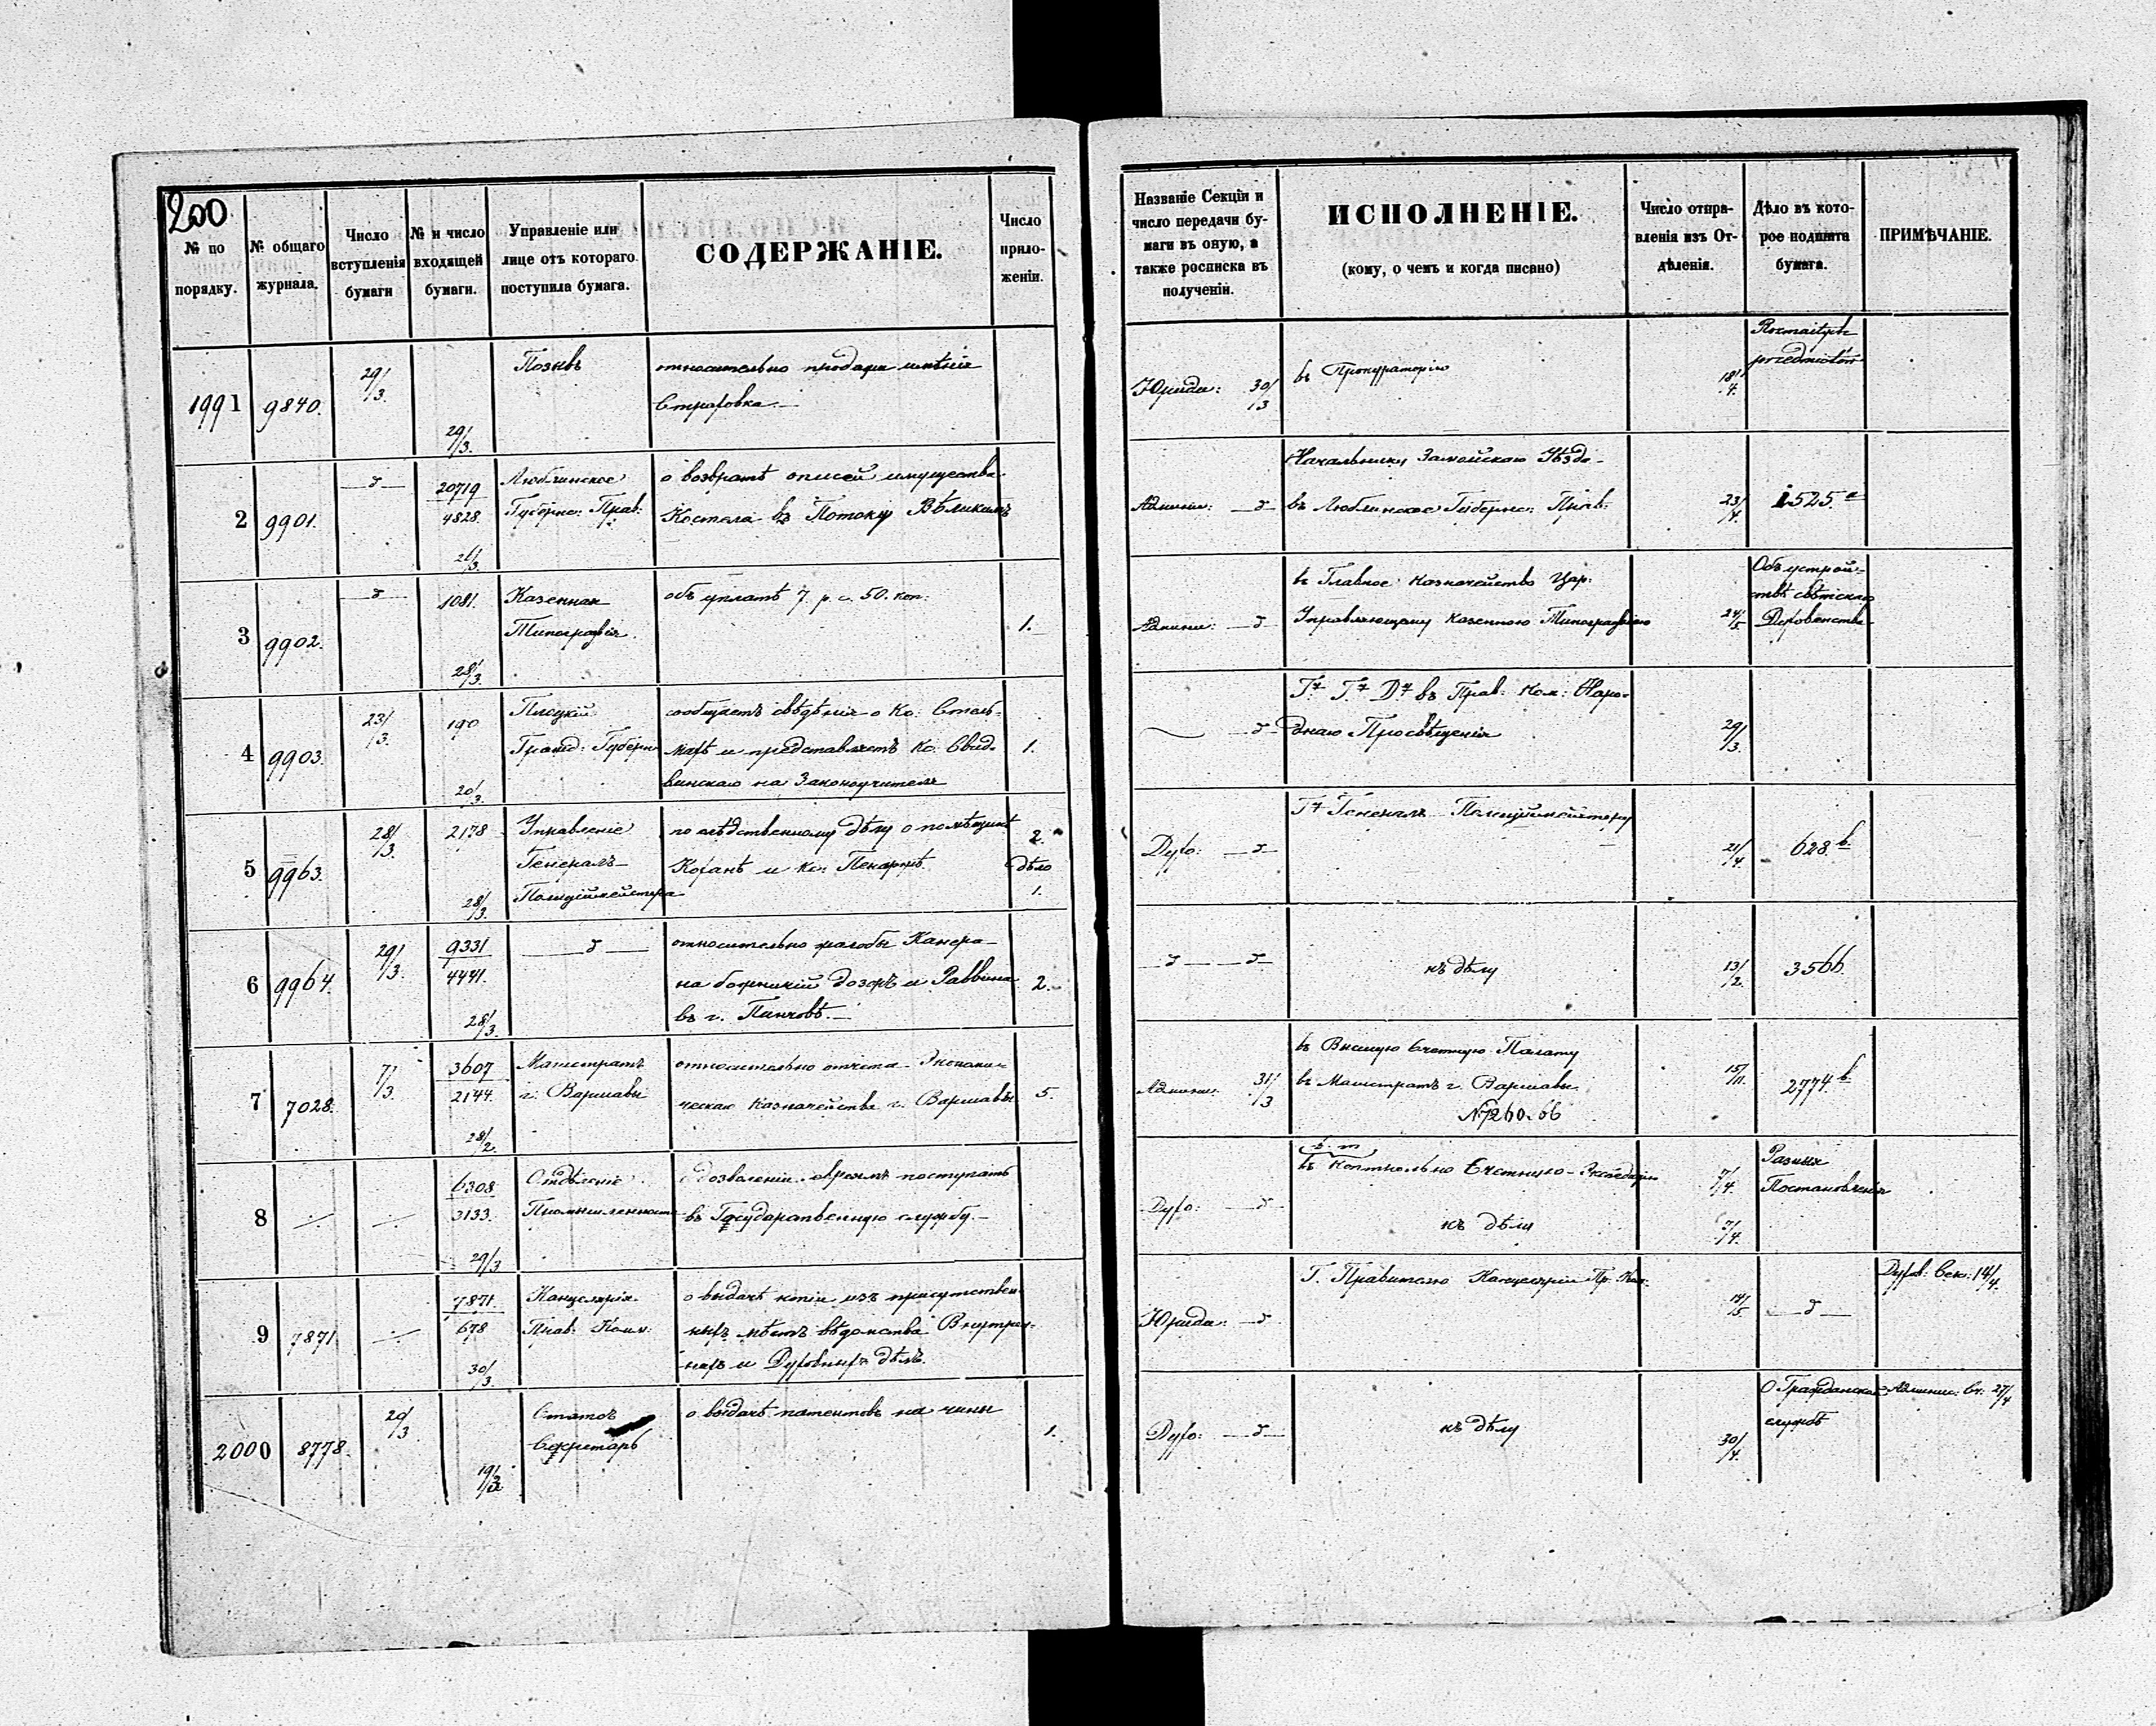 200
№ по порядку.
№ общаго журнала.
Число вступленія бумаги
№ и число входящей бумаги.
Управленіе или лице отъ котораго поступила бумага.
СОДЕРЖАНІЕ.
Число прило-женій.
Названіе Секціи и число передачи бу-маги въ оную, а также росписка въ полученіи.
ИСПОЛНЕНІЕ.
(кому, о чемъ и когда писано)
Число отпра-вленія изъ От-дѣленія.
Дѣло въ кото-рое подшита бумага.
ПРИМѢЧАНІЕ.
1991 9840. 29/3. 29/3. Позывъ
относительно продажи имѣнія
Юрида: 30/3 въ Прокураторію 18/4. Rozmaitych
przedmiotów
2 9901. 20719 4828. Люблинское
Губерн: Прав:
о возвратѣ описей имущества
Костела въ Потоку Вѣликимъ
Админи: Начальнику Замойскаго Уѣзда
въ Люблинское Губернс: Прав: 23/4. 1525
3 9902. 1081. Казенная
Типографія.
объ уплатѣ 7. р. с. 50. коп.
1.
28/3.
Админи: въ Главное Казначейство Цар:
Управляющему Казенною Типографіею 24/5
Объ устрой=
ствѣ свѣтскаго
Духовенства
4 9903. 23/3. 190 20/3. Плоцкій
Гражд: Губерн
сообщаетъ свѣдѣнія о Кс:
и представляетъ Кс:
на Законоучителя
1.
въ Прав: Ком: Наро-
днаго Просвѣщенія 29/3.
5 9963. 28/3. 2178 28/3. Управленіе
Генералъ-
Полиціймейстера
по слѣдственному дѣлу о помѣщикѣ
2.
дѣло
1.
Духо: Гну Генералъ Полиціймейстеру 21/4 628 b.
6 9964. 29/3. 9331 4441. 28/3.
относительно жалобы
на божничій дозоръ и Раввина
въ г. Пинчовѣ.
2.
къ дѣлу 13/2. 3566.
7 7028. 7/3. 3607 2144. 28/2. Магистратъ
г. Варшавы
относительно отчета Экономи=
ческаго Казначейства г. Варшавы
5.
Админи: 31/3 въ Высшую Счетную Палату
въ Магистратъ г. Варшавы
№ 7260. 66
15/11. 2774 b.
8 6308 3133. 29/3 Отдѣленіе
Промышленности
о дозволеніи евреямъ поступать
въ Государственную службу.
Духо: въ Контрольно Счетную Экспедицію 7/4.
къ дѣлу 7/4.
Разныя
Постановленія
9 7871. 7871 678 30/3. Канцелярія
Прав: Комм:
о выдачѣ копіи изъ присутствен
ныхъ мѣстъ вѣдомства Внутрен-
нихъ и Духовныхъ дѣлъ.
Юрида: Г. Правителю Канцеляріи Пр: Ком: 14/5
Духов: Сек: 14/4.
2000 8778. 20/3 19/3 Статсъ
Секретарь
о выдачѣ патентовъ на чины
1.
Духо: къ дѣлу 30/4. О Гражданской
службѣ
Админис: Се: 27/4